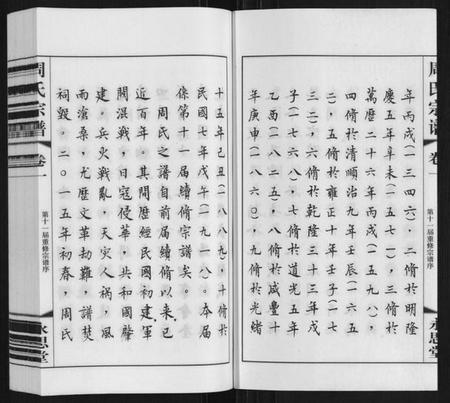 周氏宗谱
卷一
第十一届重修宗谱序
永思堂
年丙戌(一三四六),二脩於明隆
慶五年辛未(一五七一),三脩於
萬曆二十六年丙戌(一五九八),
四脩於清順治九年壬辰(一六五
二),五脩於雍正十年壬子(一七
三二),六脩於乾隆三十三年戊
子(一七六八),七脩於道光五年
乙酉(一八二五),八脩於咸豐十
年庚申(一八六〇),九脩於光緒
十五年己丑(一八八九),十脩於
民國七年戊午(一九一八)。本届
係第十一届續脩宗譜矣。
周氏之譜自前届續脩以來已
近百年。其間歷經民國初建軍
閥混戰,日寇侵華,共和國肇
建,兵火戰亂,天灾人祸,風
雨滄桑,尤歷文革劫難,譜焚
祠毁。二〇一五年初春,周氏
周氏宗譜
卷一
第十一届重修宗谱序
永思堂